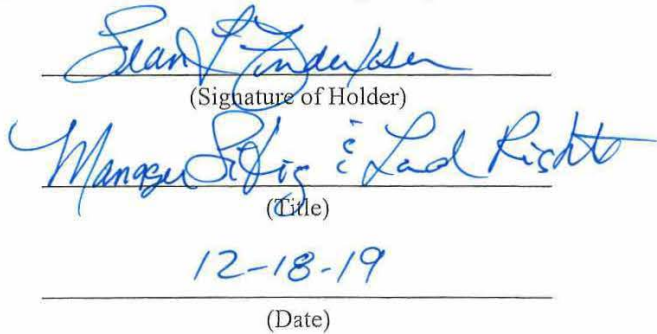 Sean
(Signature of Holder)
Manager Siting & Land Rights
(Title)
12-18-19
(Date)